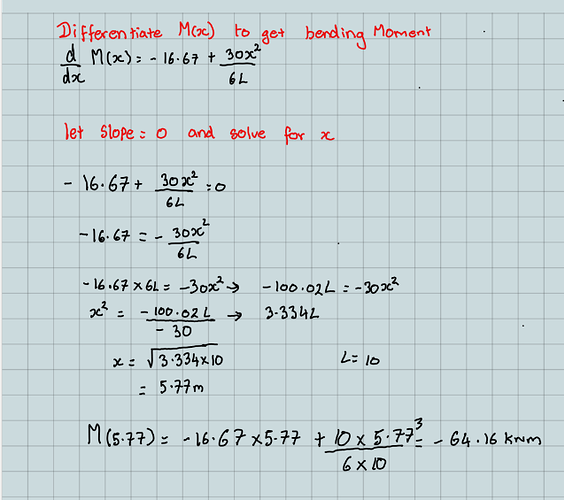 Differentiate M(x) to get bending Moment
d/dx M(x) = - 16.67 + 30x²/6L
let slope = 0 and solve for x
- 16.67 + 30x²/6L = 0
-16.67 = - 30x²/6L
-16.67 x 6L = -30x² → -100.02L = -30x²
x² = -100.02L/-30 → 3.334L
x = √3.334x10 L = 10
= 5.77m
M(5.77) = -16.67 x 5.77 + 10 x 5.77³/6 x 10 = - 64.16 kNm